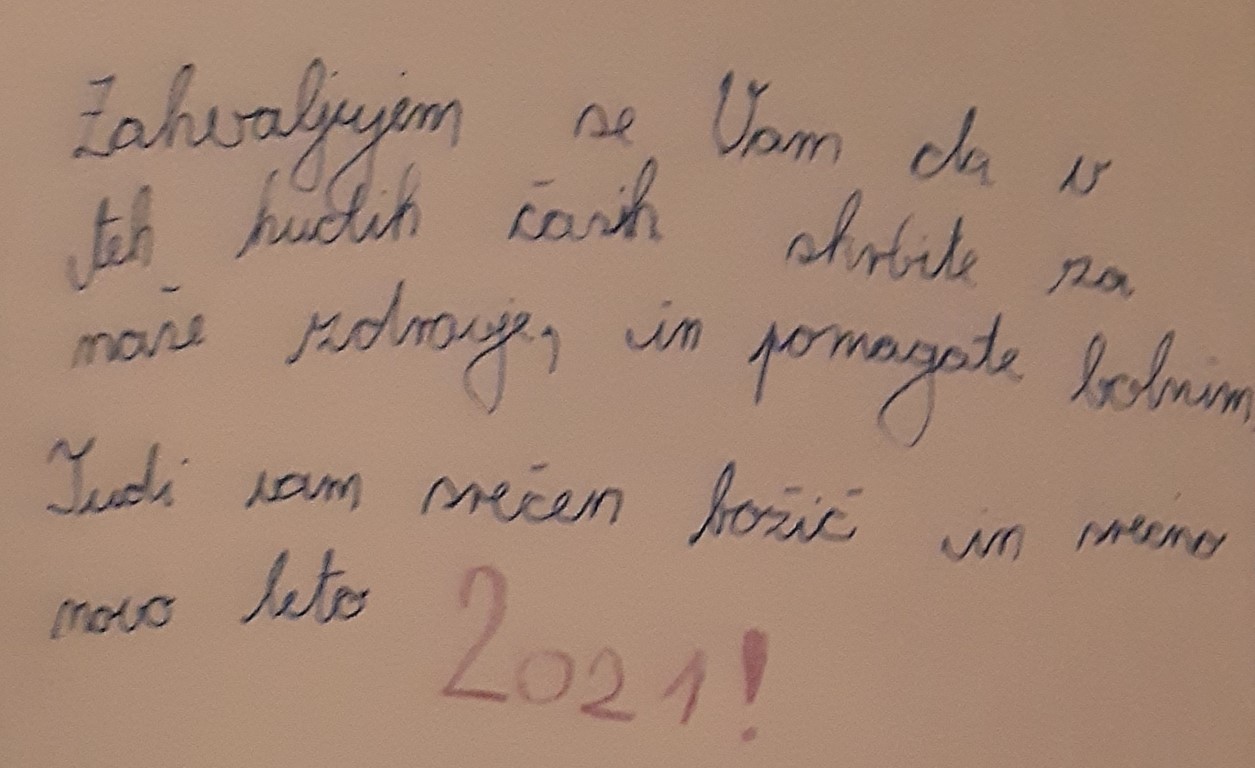 Zahvaljujem se Vam da v
teh hudih časih skrbite za
naše zdravje, in pomagate bolnim.
Tudi vam srečen božič in srečno
novo leto 2021!